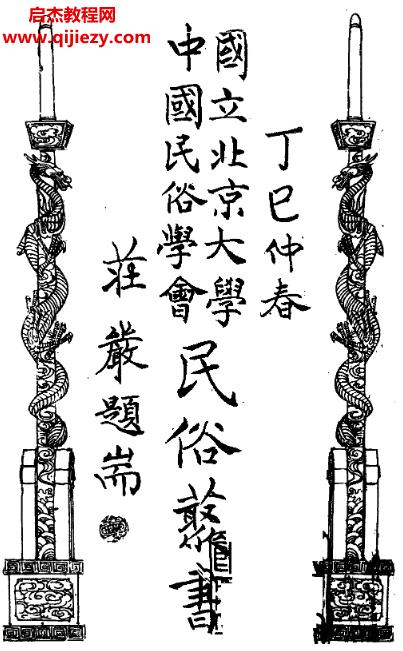 启杰教程网
www.qijiezy.com
丁巳仲春
國立北京大學
中國民俗學會
民俗叢書
莊嚴題耑